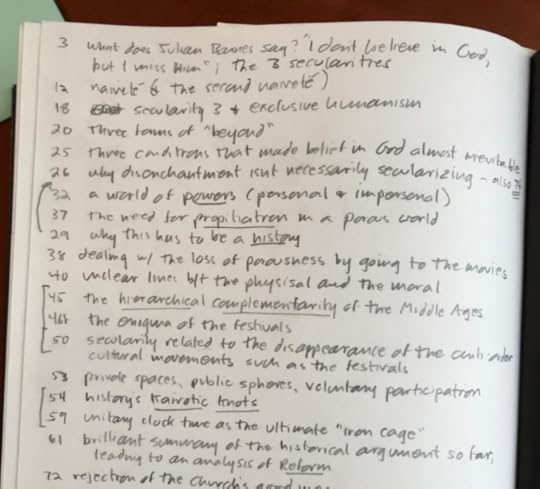 3 what does Julian Barnes say? "I don't believe in God,
but I miss Him"; the 3 secularities
12 naiveté (& the second naiveté)
18 secularity 3 + exclusive humanism
20 three forms of "beyond"
25 three conditions that made belief in God almost inevitable
26 why disenchantment isn't necessarily secularizing – also
32 a world of powers (personal & impersonal)
37 the need for propitiation in a porous world
29 why this has to be a history
38 dealing w/ the loss of porousness by going to the movies
40 unclear lines b/t the physical and the moral
45 the hierarchical complementarity of the Middle Ages
46f the enigma of the festivals
50 secularity related to the disappearance of the anti-order
cultural movements such as the festivals
53 private spaces, public spheres, voluntary participation
54 history's kairotic knots
59 unitary clock time as the ultimate "iron cage"
61 brilliant summary of the historical argument so far,
leading to an analysis of Reform
72 rejection of the Church's good